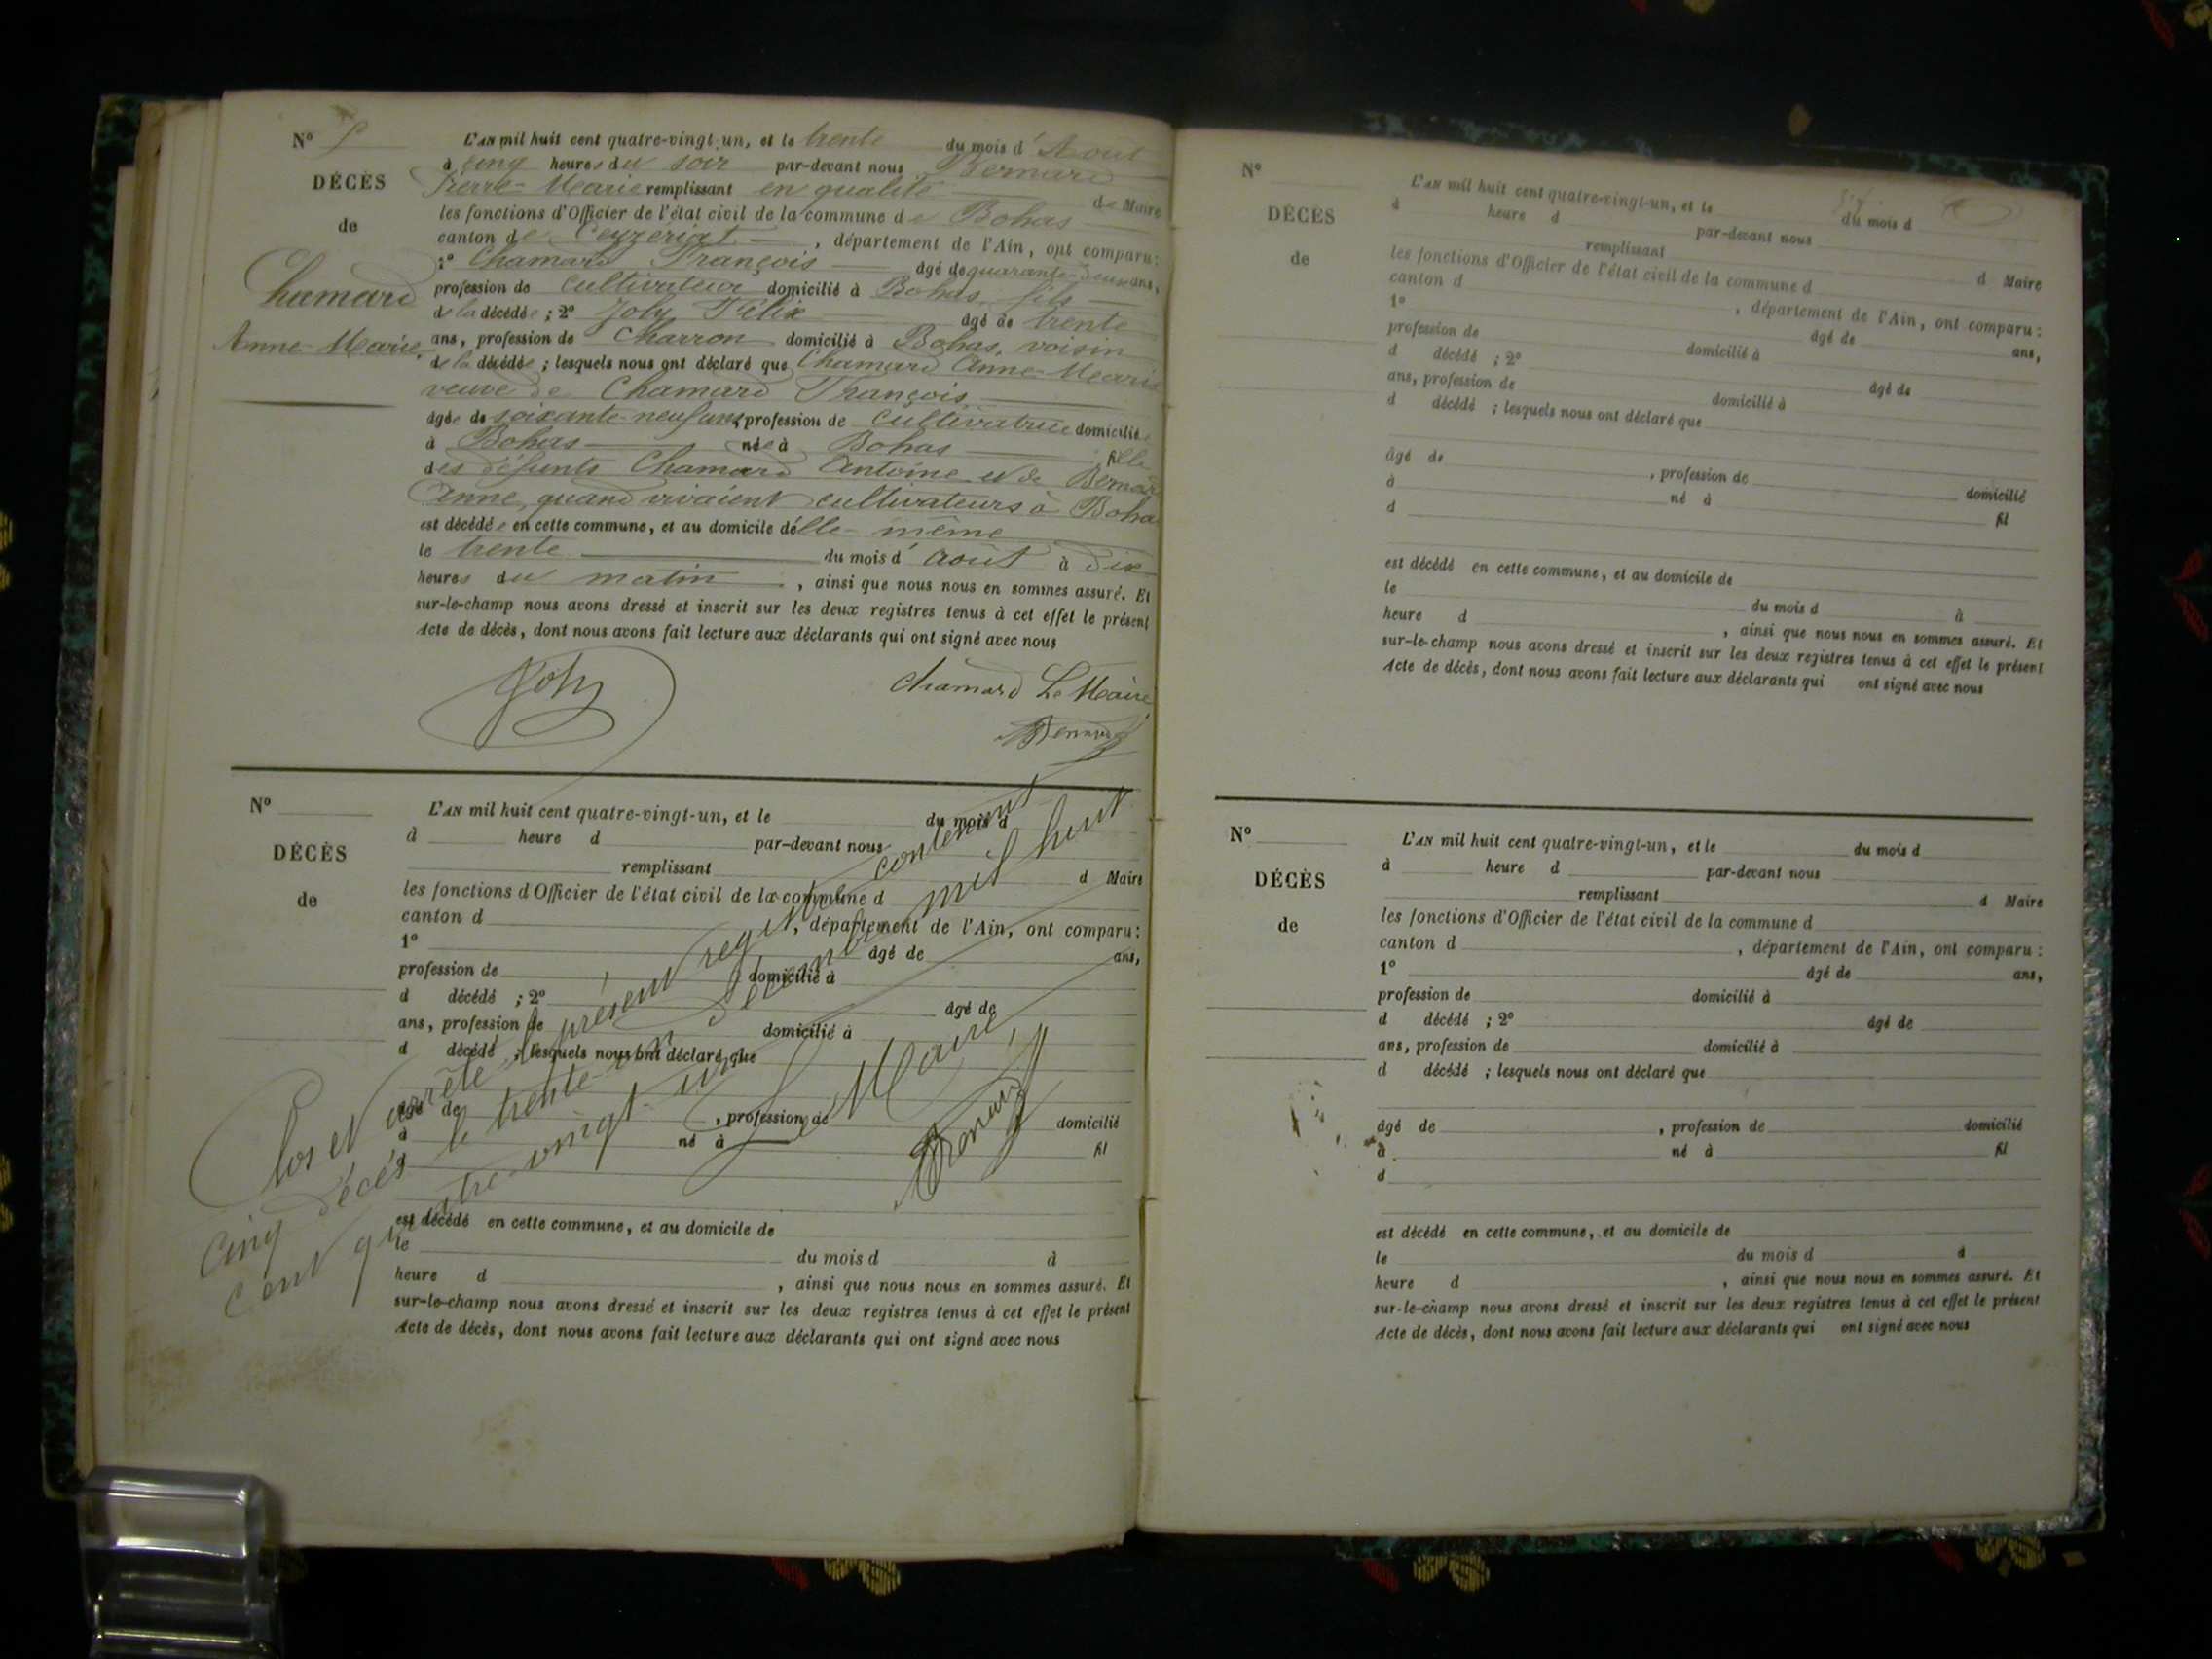 N° 5
DÉCÈS
de
Chamard
Anne-Marie,
L'AN mil huit cent quatre-vingt-un, et le trente du mois d'Août
à cinq heures du soir par-devant nous Bernard
Pierre-Marie remplissant en qualité de Maire
les fonctions d'Officier de l'état civil de la commune de Bohas
canton de Ceyzeriat, département de l'Ain, ont comparu:
1° Chamard François âgé de quarante-deux ans,
profession de Cultivateur domicilié à Bohas, fils
de la décédée; 2° Joly Félix âgé de trente
ans, profession de Charron domicilié à Bohas, voisin
de la décédée; lesquels nous ont déclaré que Chamard Anne-Marie
veuve de Chamard François
âgée de soixante-neuf ans, profession de cultivatrice domiciliée
à Bohas née à Bohas fille
des défunts Chamard Antoine et de Bernard
Anne, quand vivaient cultivateurs à Bohas
est décédée en cette commune, et au domicile d'elle-même
le trente du mois d'août à dix
heures du matin, ainsi que nous nous en sommes assuré. Et
sur-le-champ nous avons dressé et inscrit sur les deux registres tenus à cet effet le présent
Acte de décès, dont nous avons fait lecture aux déclarants qui ont signé avec nous
Joly
Chamard Le Maire
Bernard
N°
DÉCÈS
de
L'AN mil huit cent quatre-vingt-un, et le du mois d
à heure d par-devant nous
remplissant d Maire
les fonctions d'Officier de l'état civil de la commune d
canton d , département de l'Ain, ont comparu:
1° âgé de ans,
profession de domicilié à
d décédé ; 2° âgé de
ans, profession de domicilié à
d décédé ; lesquels nous ont déclaré que
âgé de , profession de domicilié
à né à fil
d
est décédé en cette commune, et au domicile de
le du mois d à
heure d , ainsi que nous nous en sommes assuré. Et
sur-le-champ nous avons dressé et inscrit sur les deux registres tenus à cet effet le présent
Acte de décès, dont nous avons fait lecture aux déclarants qui ont signé avec nous
Clos et arrêté le présent registre contenant
cinq décès le trente-un Décembre mil huit
cent quatre-vingt-un
Le Maire,
Bernard
N°
DÉCÈS
de
L'AN mil huit cent quatre-vingt-un, et le du mois d
à heure d par-devant nous
remplissant d Maire
les fonctions d'Officier de l'état civil de la commune d
canton d , département de l'Ain, ont comparu:
1° âgé de ans,
profession de domicilié à
d décédé ; 2° âgé de
ans, profession de domicilié à
d décédé ; lesquels nous ont déclaré que
âgé de , profession de domicilié
à né à fil
d
est décédé en cette commune, et au domicile de
le du mois d à
heure d , ainsi que nous nous en sommes assuré. Et
sur-le-champ nous avons dressé et inscrit sur les deux registres tenus à cet effet le présent
Acte de décès, dont nous avons fait lecture aux déclarants qui ont signé avec nous
N°
DÉCÈS
de
L'AN mil huit cent quatre-vingt-un, et le du mois d
à heure d par-devant nous
remplissant d Maire
les fonctions d'Officier de l'état civil de la commune d
canton d , département de l'Ain, ont comparu:
1° âgé de ans,
profession de domicilié à
d décédé ; 2° âgé de
ans, profession de domicilié à
d décédé ; lesquels nous ont déclaré que
âgé de , profession de domicilié
à né à fil
d
est décédé en cette commune, et au domicile de
le du mois d à
heure d , ainsi que nous nous en sommes assuré. Et
sur-le-champ nous avons dressé et inscrit sur les deux registres tenus à cet effet le présent
Acte de décès, dont nous avons fait lecture aux déclarants qui ont signé avec nous